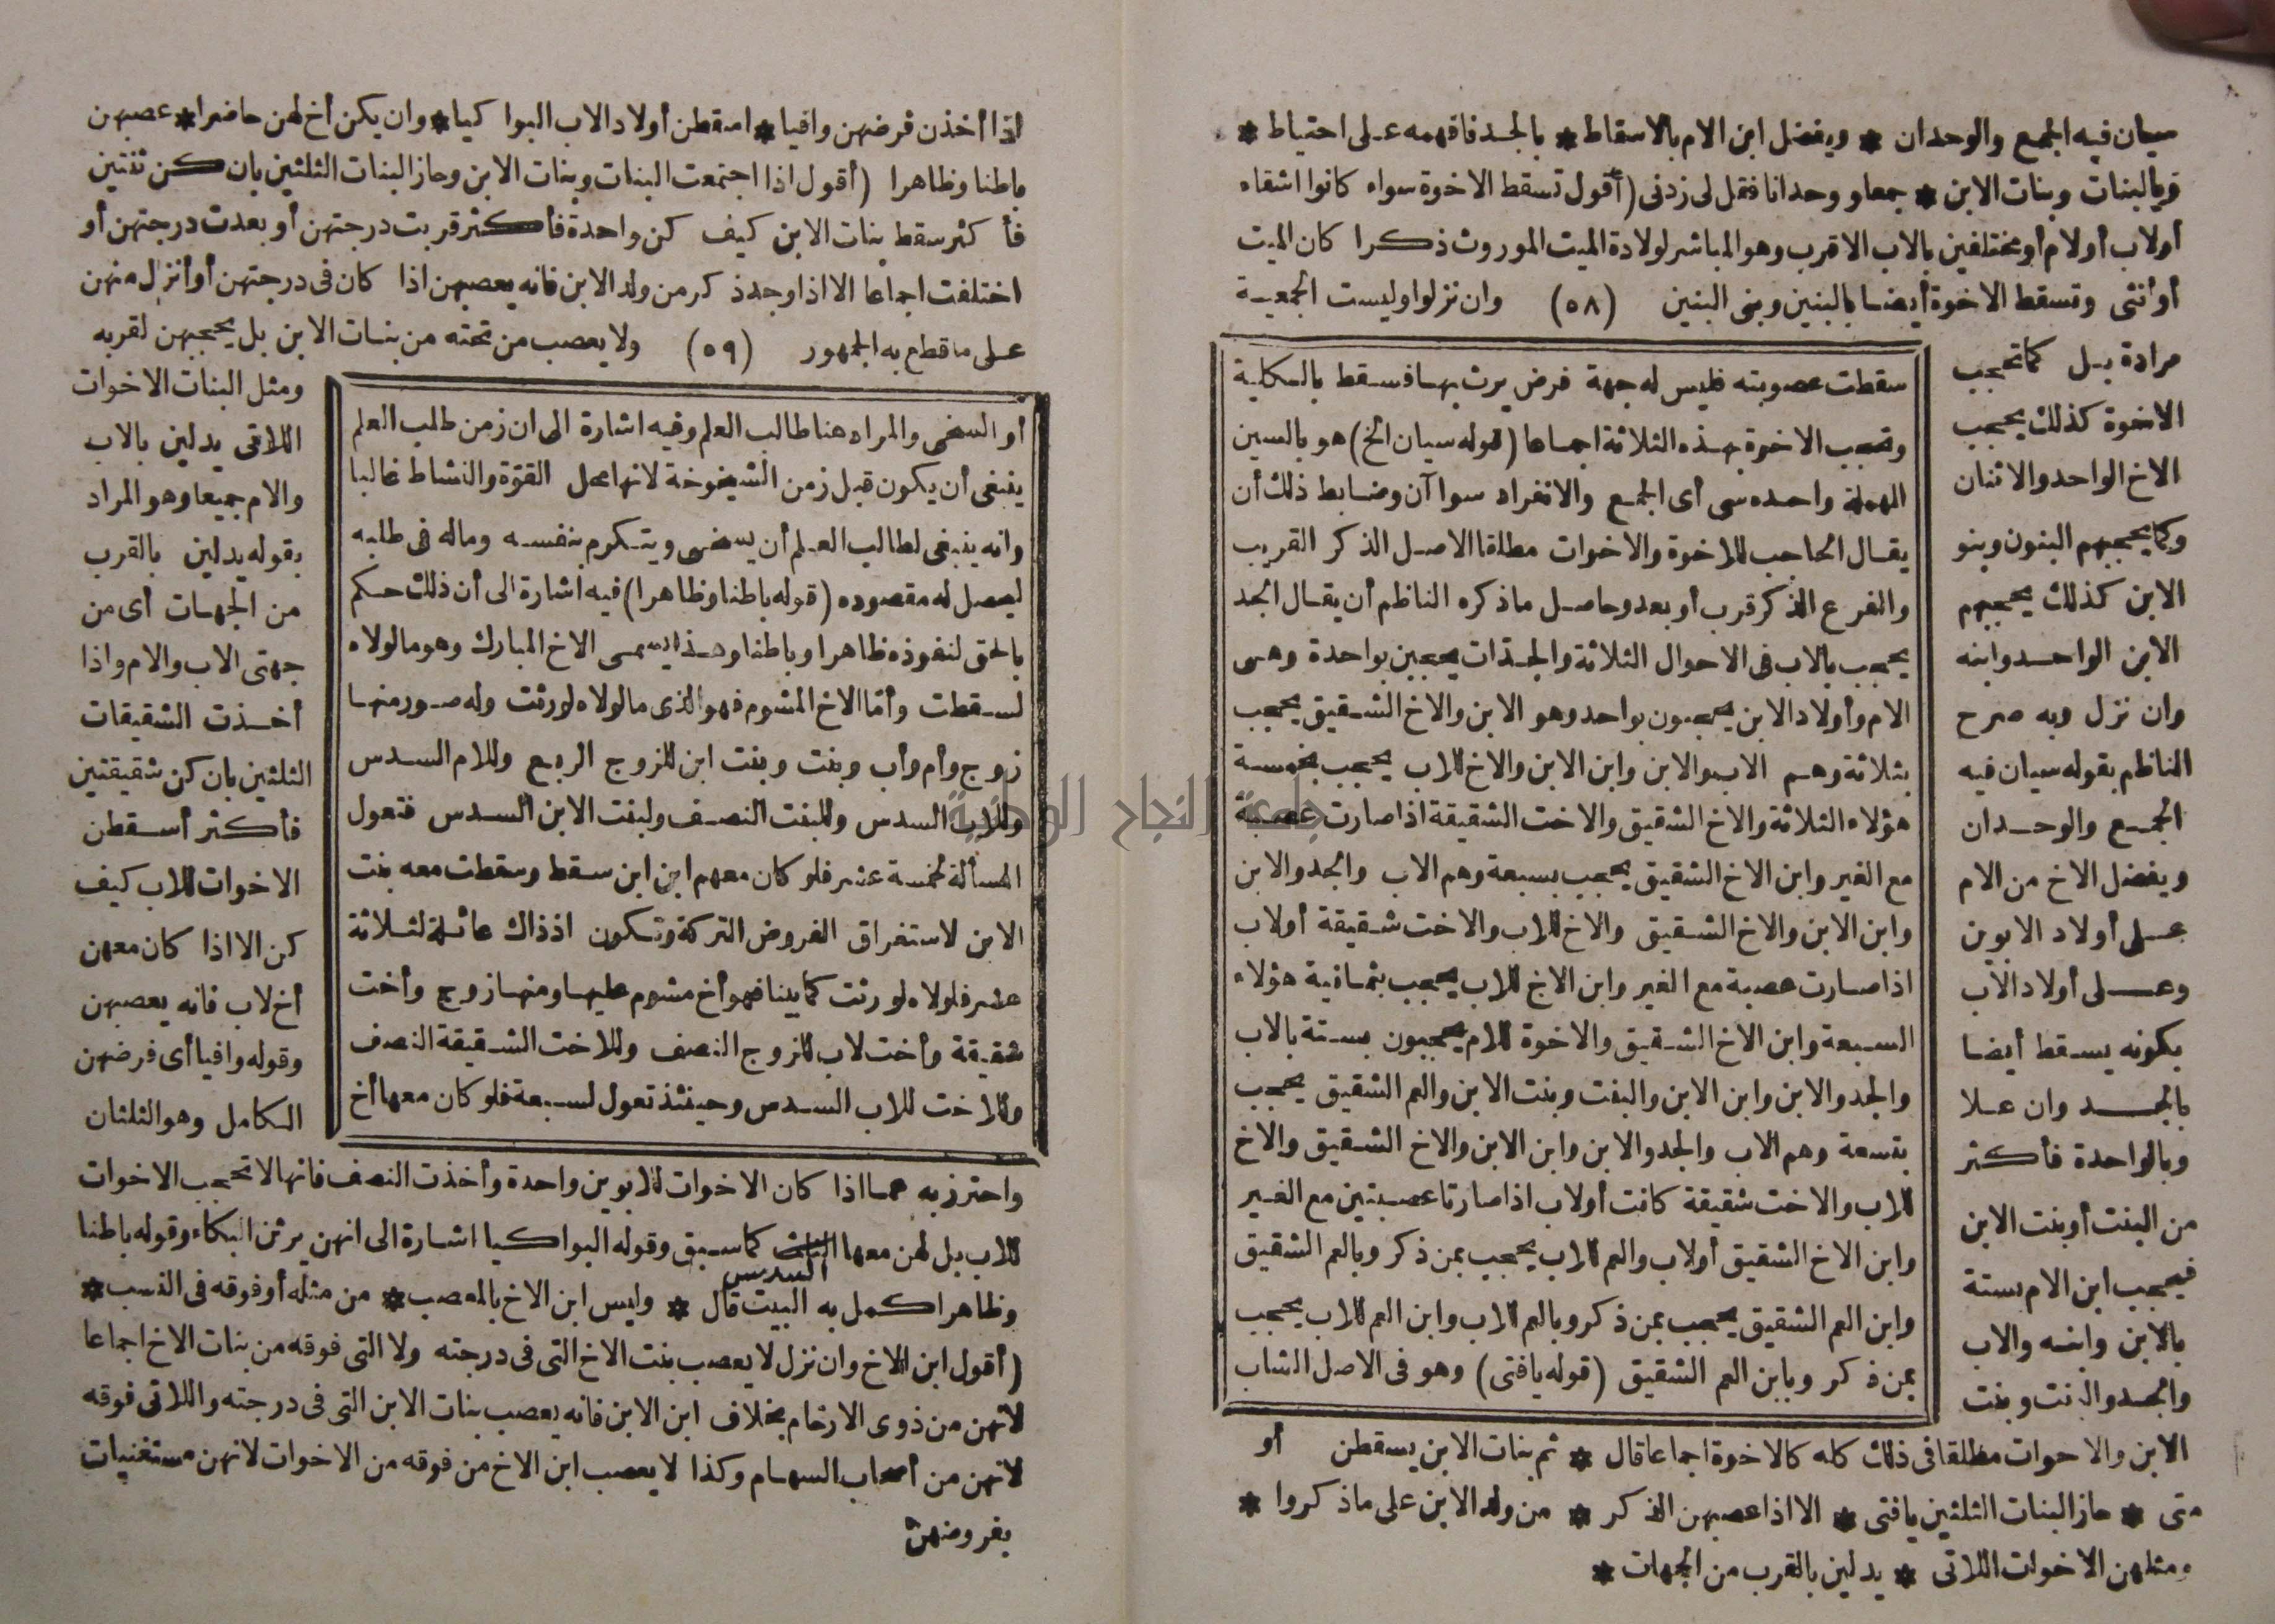 سيان فيه الجمع والوحدان * ويفضل ابن الام بالاسقاط * بالجد فافهمه على احتياط *
وبالبنات وبنات الابن * جمعا ووحدانا فقل لى زدنى (أقول تسقط الاخوة سواء كانوا اشقاء
أولاب أولام أو مختلفين بالاب الاقرب وهو المباشر لولادة الميت الموروث ذكرا كان الميت
أو أنثى وتسقط الاخوة أيضا بالبنين وبنى البنين (٥٨) وان نزلوا وليست الجمعية
مرادة بل كما تحجب
الاخوة كذلك يحجب
الاخ الواحد والاثنان
وكما يحجبهم البنون وبنو
الابن كذلك يحجبهم
الابن الواحد وابنه
وان نزل وبه صرح
الناظم بقوله سيان فيه
الجمع والوحدان
ويفضل الاخ من الام
على أولاد الابوين
وعلى أولاد الاب
بكونه يسقط أيضا
بالجد وان علا
وبالواحدة فأكثر
من البنت أو بنت الابن
فيحجب ابن الام بستة
بالابن وابنه والاب
والجد والبنت وبنت
الابن والاخوات مطلقا فى ذلك كله كالاخوة اجماعا قال * ثم بنات الابن يسقطن أو
متى * حاز البنات الثلثين يا فتى * الا اذا عصبهن الذكر * من ولد الابن على ما ذكروا *
ومثلهن الاخوات اللاتى * يدلين بالقرب من الجهات *
سقطت عصوبته فليس له جهة فرض يرث بها فسقط بالكلية
وتحجب الاخوة بهذه الثلاثة اجماعا (قوله سيان الخ) هو بالسين
المهملة واحده سى أى الجمع والانفراد سوا آن وضابط ذلك أن
يقال الحاجب للاخوة والاخوات مطلقا الاصل الذكر القريب
والفرع الذكر قرب أو بعد وحاصل ما ذكره الناظم أن يقال الجد
يحجب بالاب فى الاحوال الثلاثة والجدات يحجبن بواحدة وهى
الام وأولاد الابن يحجبون بواحد وهو الابن والاخ الشقيق يحجب
بثلاثة وهم الاب والابن وابن الابن والاخ للاب يحجب بخمسة
هؤلاء الثلاثة والاخ الشقيق والاخت الشقيقة اذا صارت عصبة
مع الغير وابن الاخ الشقيق يحجب بسبعة وهم الاب والجد والابن
وابن الابن والاخ الشقيق والاخ للاب والاخت شقيقة أولاب
اذا صارت عصبة مع الغير وابن الاخ للاب يحجب بثمانية هؤلاء
السبعة وابن الاخ الشقيق والاخوة للام يحجبون بستة بالاب
والجد والابن وابن الابن والبنت وبنت الابن والعم الشقيق يحجب
بتسعة وهم الاب والجد والابن وابن الابن والاخ الشقيق والاخ
للاب والاخت شقيقة كانت أولاب اذا صارتا عصبتين مع الغير
وابن الاخ الشقيق أولاب والعم للاب يحجب بمن ذكر وبالعم الشقيق
وابن العم الشقيق يحجب بمن ذكر وبالعم للاب وابن العم للاب يحجب
بمن ذكر وبابن العم الشقيق (قوله يا فتى) وهو فى الاصل الشاب
اذا أخذن فرضهن وافيا * اسقطن أولاد الاب البواكيا * وان يكن أخ لهن حاضرا * عصبهن
باطنا وظاهرا (أقول اذا اجتمعت البنات وبنات الابن وحاز البنات الثلثين بان كن ثنتين
فأكثر سقط بنات الابن كيف كن واحدة فأكثر قربت درجتهن أو بعدت درجتهن أو
اختلفت اجماعا الا اذا وجد ذكر من ولد الابن فانه يعصبهن اذا كان فى درجتهن أو أنزل منهن
على ما قطع به الجمهور (٥٩) ولا يعصب من تحته من بنات الابن بل يحجبهن لقربه
ومثل البنات الاخوات
اللاتى يدلين بالاب
والام جميعا وهو المراد
بقوله يدلين بالقرب
من الجهات أى من
جهتى الاب والام واذا
أخذت الشقيقات
الثلثين بان كن شقيقتين
فأكثر أسقطن
الاخوات للاب كيف
كن الا اذا كان معهن
أخ لاب فانه يعصبهن
وقوله وافيا أى فرضهن
الكامل وهو الثلثان
أو السخى والمراد هنا طالب العلم وفيه اشارة الى ان زمن طلب العلم
ينبغى أن يكون قبل زمن الشيخوخة لانها محل القوة والنشاط غالبا
وانه ينبغى لطالب العلم أن يسخى ويتكرم بنفسه وماله فى طلبه
ليحصل له مقصوده (قوله باطنا وظاهرا) فيه اشارة الى أن ذلك حكم
بالحق لنفوذه ظاهرا وباطنا وهذا يسمى الاخ المبارك وهو ما لولاه
لسقطت وأما الاخ المشوم فهو الذى ما لولاه لورثت وله صور منها
زوج وأم وأب وبنت وبنت ابن للزوج الربع وللام السدس
وللاب السدس وللبنت النصف ولبنت الابن السدس فتعول
المسألة لخمسة عشر فلو كان معهم ابن ابن سقط وسقطت معه بنت
الابن لاستغراق الفروض التركة وتكون اذ ذاك عائلة لثلاثة
عشر فلولاه لورثت كما بينا فهو أخ مشوم عليها ومنها زوج وأخت
شقيقة وأخت لاب للزوج النصف وللاخت الشقيقة النصف
وللاخت للاب السدس وحينئذ تعول لسبعة فلو كان معها أخ
واحترز به عما اذا كان الاخوات للابوين واحدة وأخذت النصف فانها لا تحجب الاخوات
للاب بل لهن معها كما سبق وقوله البواكيا اشارة الى انهن يرثن البكاء وقوله باطنا
السدس
وظاهرا كمل به البيت قال * وليس ابن الاخ بالمعصب * من مثله أو فوقه فى النسب *
(أقول ابن الاخ وان نزل لا يعصب بنت الاخ التى فى درجته ولا التى فوقه من بنات الاخ اجماعا
لانهن من ذوى الارحام بخلاف ابن الابن فانه يعصب بنات الابن التى فى درجته واللاتى فوقه
لانهن من أصحاب السهام وكذا لا يعصب ابن الاخ من فوقه من الاخوات لانهن مستغنيات
بفروضهن
جامعة النجاح الوطنية